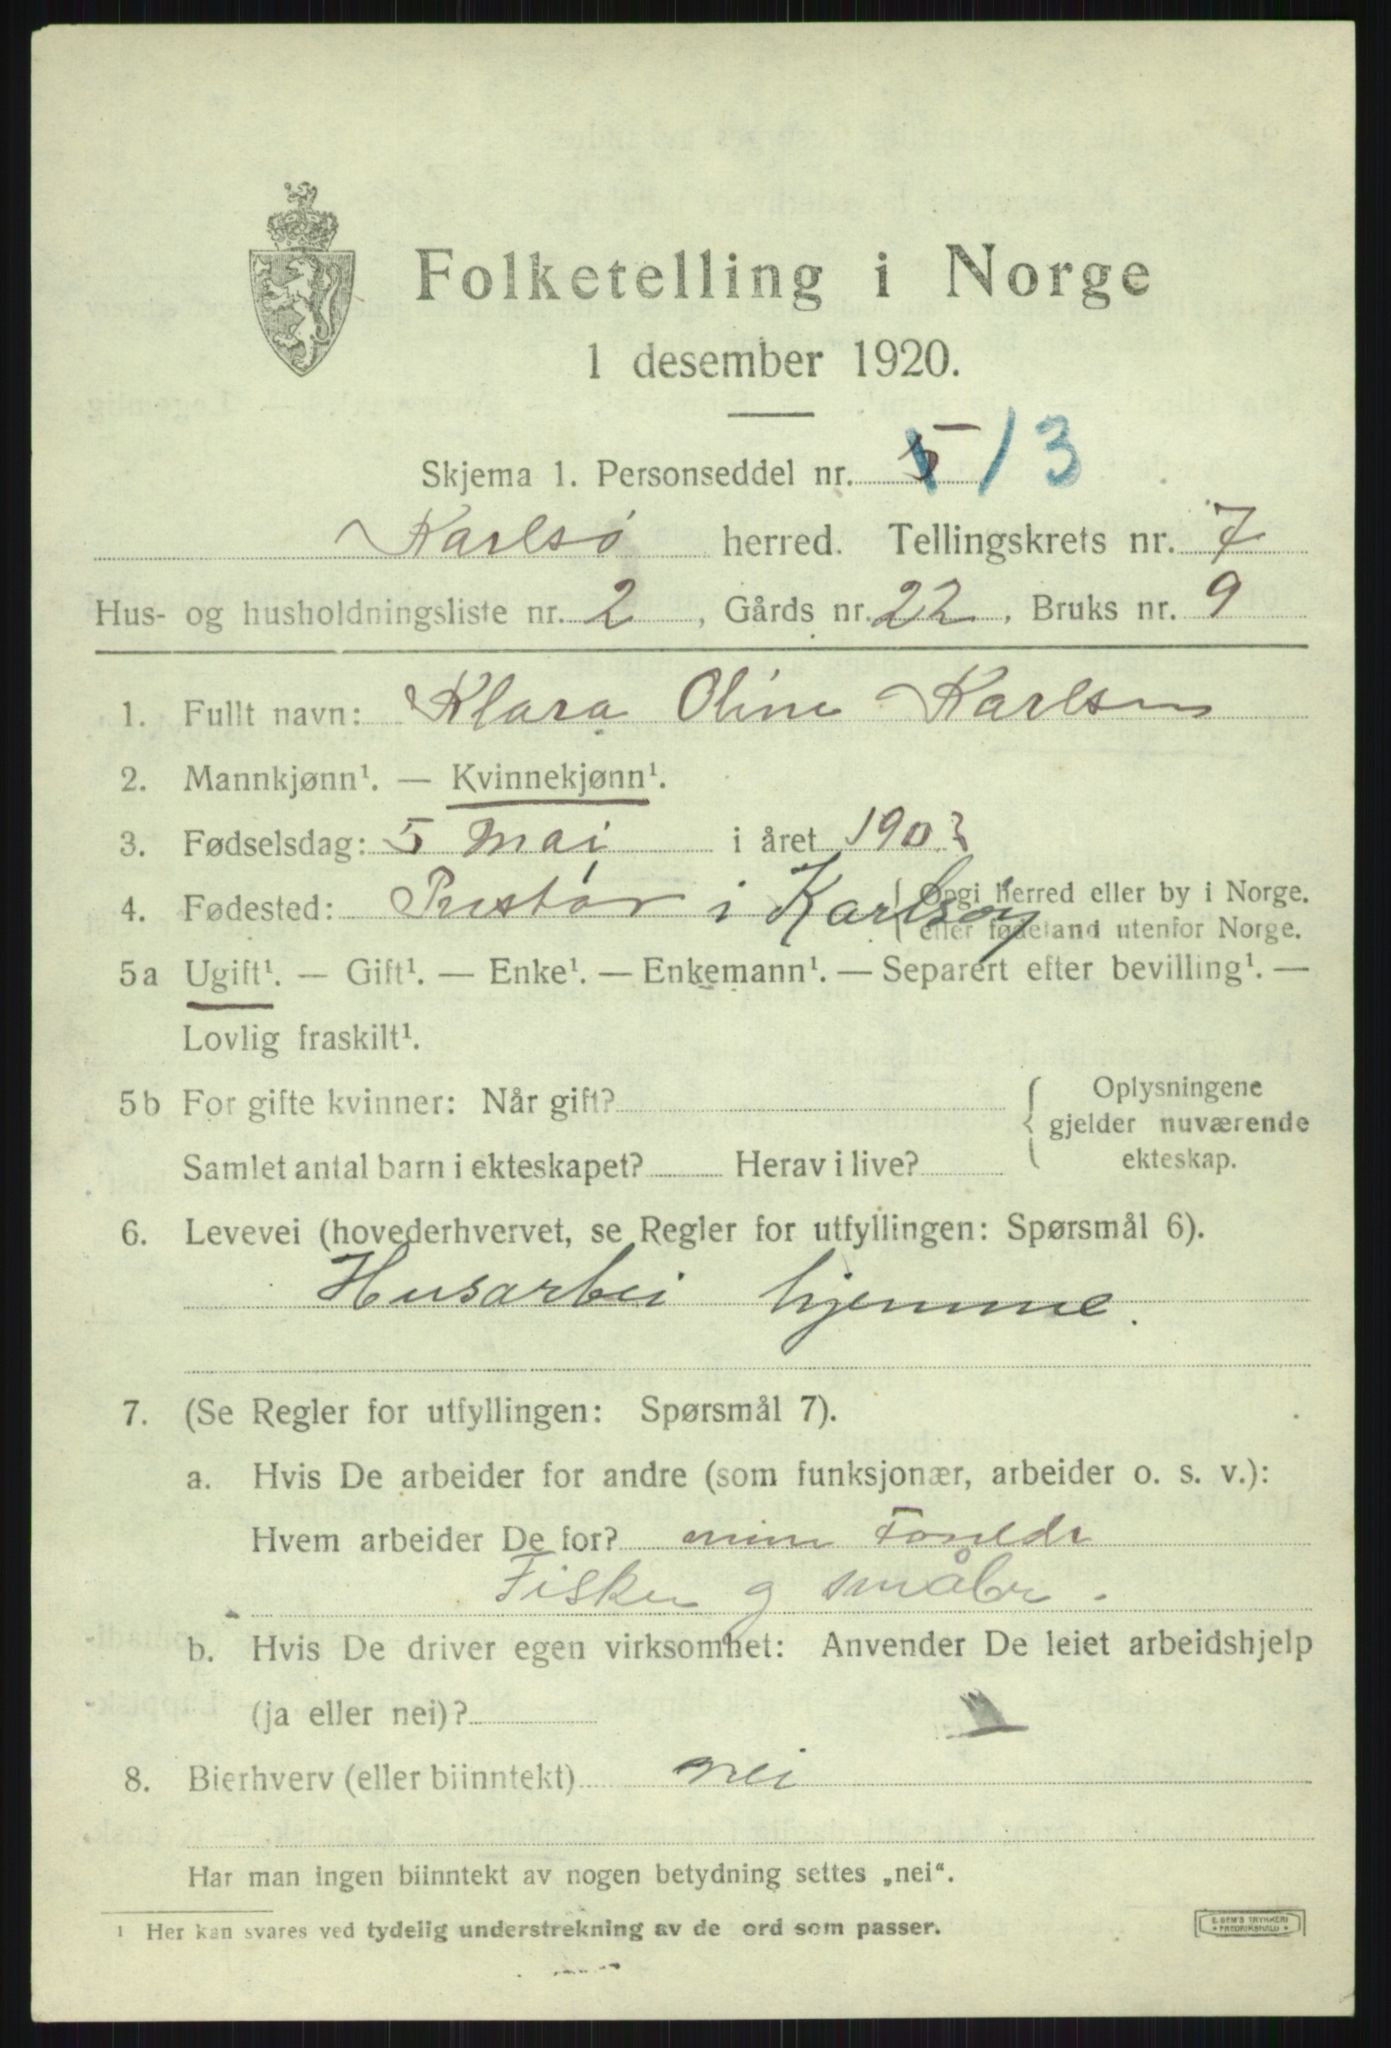 Folketelling i Norge
1 desember 1920.
Skjema 1. Personseddel nr. 5 1/3
Karlsø herred. Tellingskrets nr. 7
Hus- og husholdningsliste nr. 2, Gårds nr. 22, Bruks nr. 9
1. Fullt navn: Klara Oline Karlsen
2. Mannkjønn¹. — Kvinnekjønn¹.
3. Fødselsdag: 5 Mai i året 1903
4. Fødested: i Karlsøy { Opgi herred eller by i Norge.
eller fødeland utenfor Norge.
5a Ugift¹. — Gift¹. — Enke¹. — Enkemann¹. — Separert efter bevilling¹. —
Lovlig fraskilt¹.
5b For gifte kvinner: Når gift? { Oplysningene
gjelder nuværende
Samlet antal barn i ekteskapet? Herav i live? ekteskap.
6. Levevei (hovederhvervet, se Regler for utfyllingen: Spørsmål 6).
Husarbei hjemme.
7. (Se Regler for utfyllingen: Spørsmål 7).
a. Hvis De arbeider for andre (som funksjonær, arbeider o. s. v.):
Hvem arbeider De for? mine
Fisker g småbr.
b. Hvis De driver egen virksomhet: Anvender De leiet arbeidshjelp
(ja eller nei)?
8. Bierhverv (eller biinntekt) nei
Har man ingen biinntekt av nogen betydning settes „nei“.
1 Her kan svares ved tydelig understrekning av de ord som passer.
E. SEM'S TRYKKERI
FREDRIKSHALD